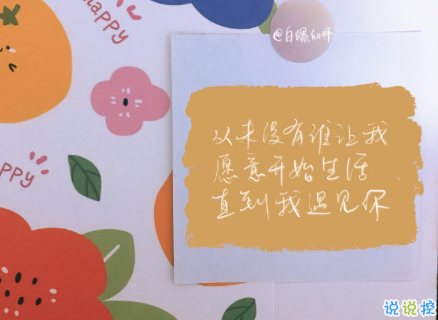 happy
@白螺仙师
从来没有谁让我
愿意开始生活
直到我遇见你
Happy
说说控